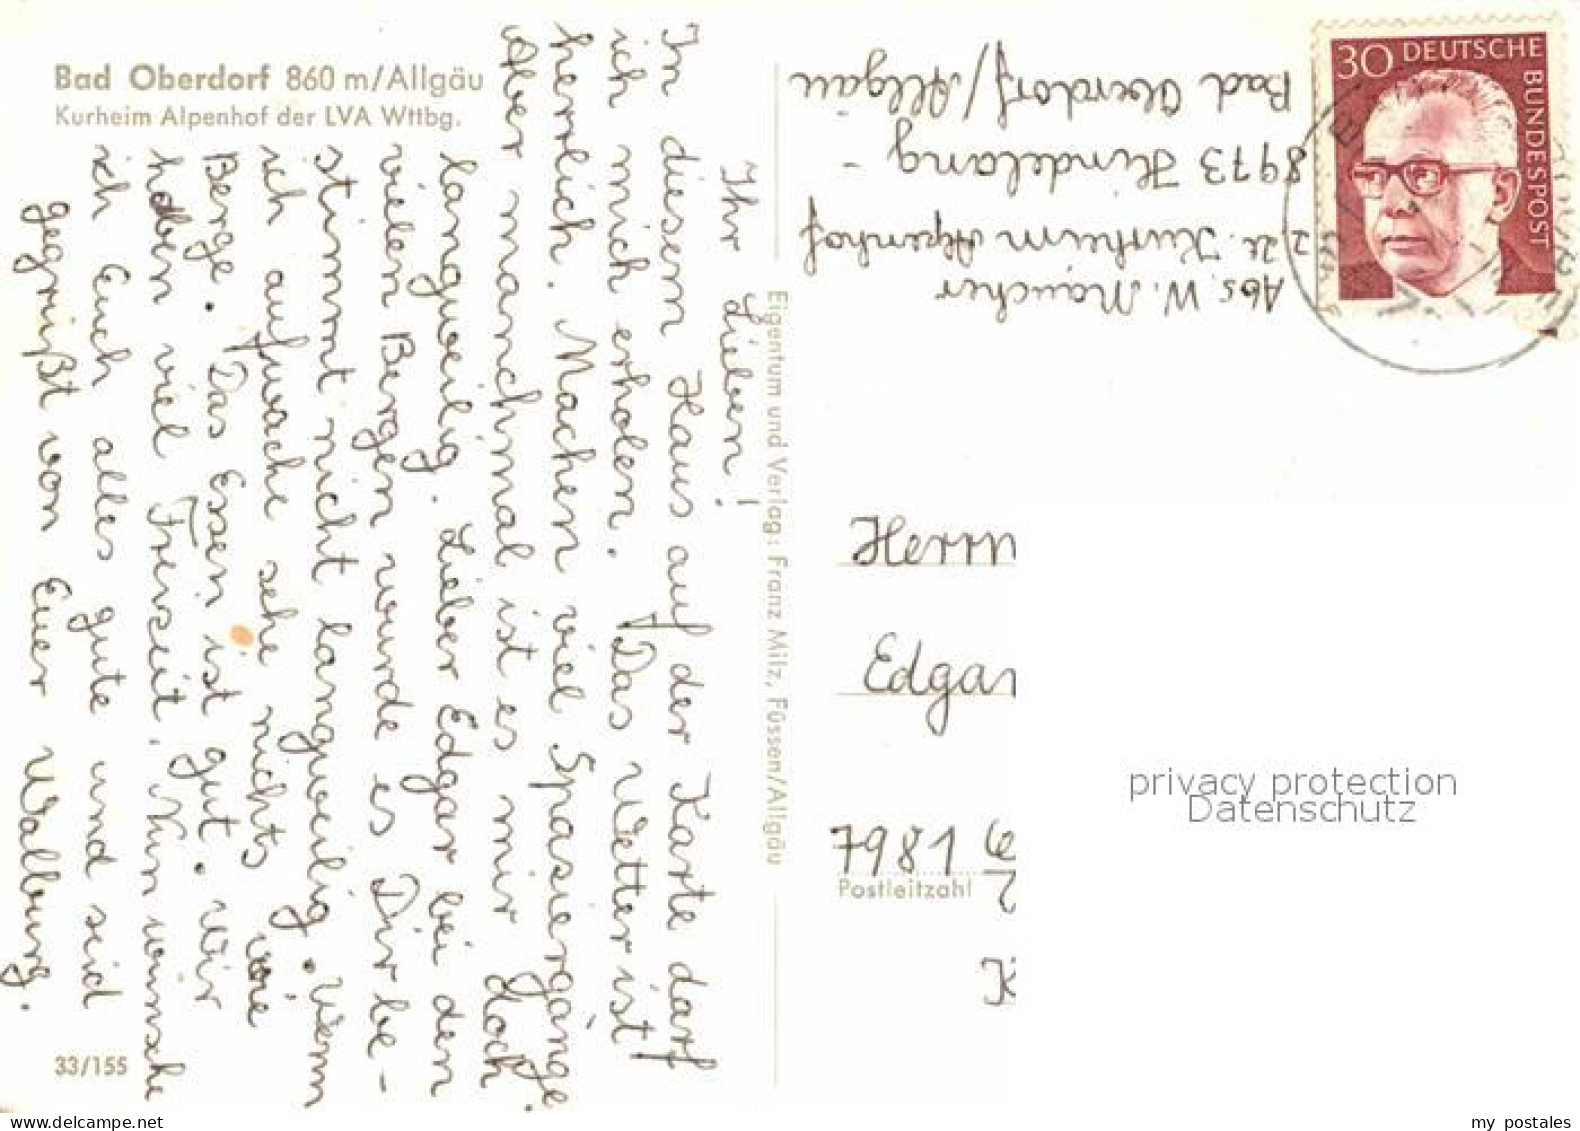 Bad Oberdorf 860 m/Allgäu
Kurheim Alpenhof der LVA Wttbg.
Ihr Lieben!
In diesem Haus auf der Karte darf
ich mich erholen. Das Wetter ist
herrlich. Machen viel Spasiergänge.
Aber manchmal ist es mir doch
langweilig. Lieber Edgar bei den
vielen Bergen wurde es Dir be-
stimmt nicht langweilig. Wenn
ich aufwache sehe nichts wie
Berge. Das Essen ist gut. Wir
haben viel Freiseit. Nun wünsche
ich Euch alles gute und seid
gegrüßt von Euer Walburg.
33/155
Eigentum und Verlag: Franz Milz, Füssen/Allgäu
Abs. W. Maucher
z. Zt. Kurheim Alpenhof
8973 Hindelang -
Bad Oberdorf/Allgäu
30 DEUTSCHE
BUNDESPOST
Herrn
Edgar
7981
Postleitzahl
privacy protection
Datenschutz
www.delcampe.net
my_postales